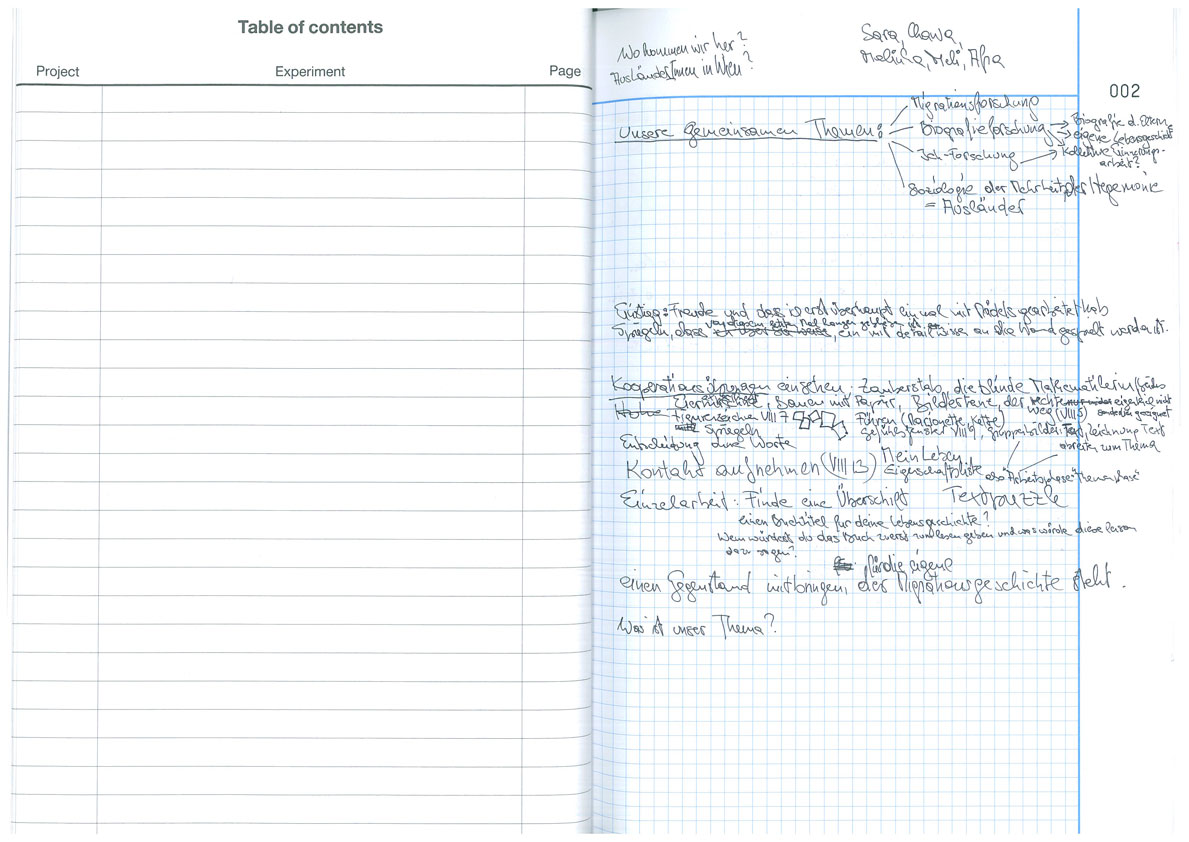 Table of contents
Project Experiment Page
Wo kommen wir her?
AusländerInnen in Wien?
Sara, Chawa,
Malinka, Meli, Afra
002
Unsere gemeinsamen Themen:
Migrationsforschung
Biografieforschung
Biografie d. Eltern
eigene Lebensgeschichte
Ich-Forschung
Kollektive Erinnerungs-
arbeit?
Soziologie der Mehrheit/der Hegemonie
= Ausländer
Einstieg: Freude und dass i erst überhaupt einmal mit Mädels gearbeitet hab
dass ein mit an die Wand gespielt werda ist.
Kooperationsübungen einsehen: Zauberstab, die blinde Mathematikerin
Bauen mit Papier, Bildersteine, der
Figurensuchen VIII 7
Führen (Marionette, Katze) Weg (VIII 5) sondern geeignet
Spiegeln
VIII 9, Gruppenbilder: Text, Zeichnung Text
Entscheidung ohne Worte
abreisen zum Thema
Kontakt aufnehmen (VIII 13) Mein Leben
Eigenschaftsliste also "Arbeitsphase: Themenphase"
Einzelarbeit: Finde eine Überschift Textpuzzle
einen Buchtitel für deine Lebensgeschichte?
Wem würdest du das Buch zuerst zum lesen geben und was würde diese Person
dazu sagen?
für die eigene
einen Gegenstand mitbringen, der Migrationsgeschichte steht.
Was ist unser Thema?